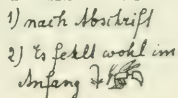 1) nach Abschrift
2) Es fehlt wohl im
Anfang